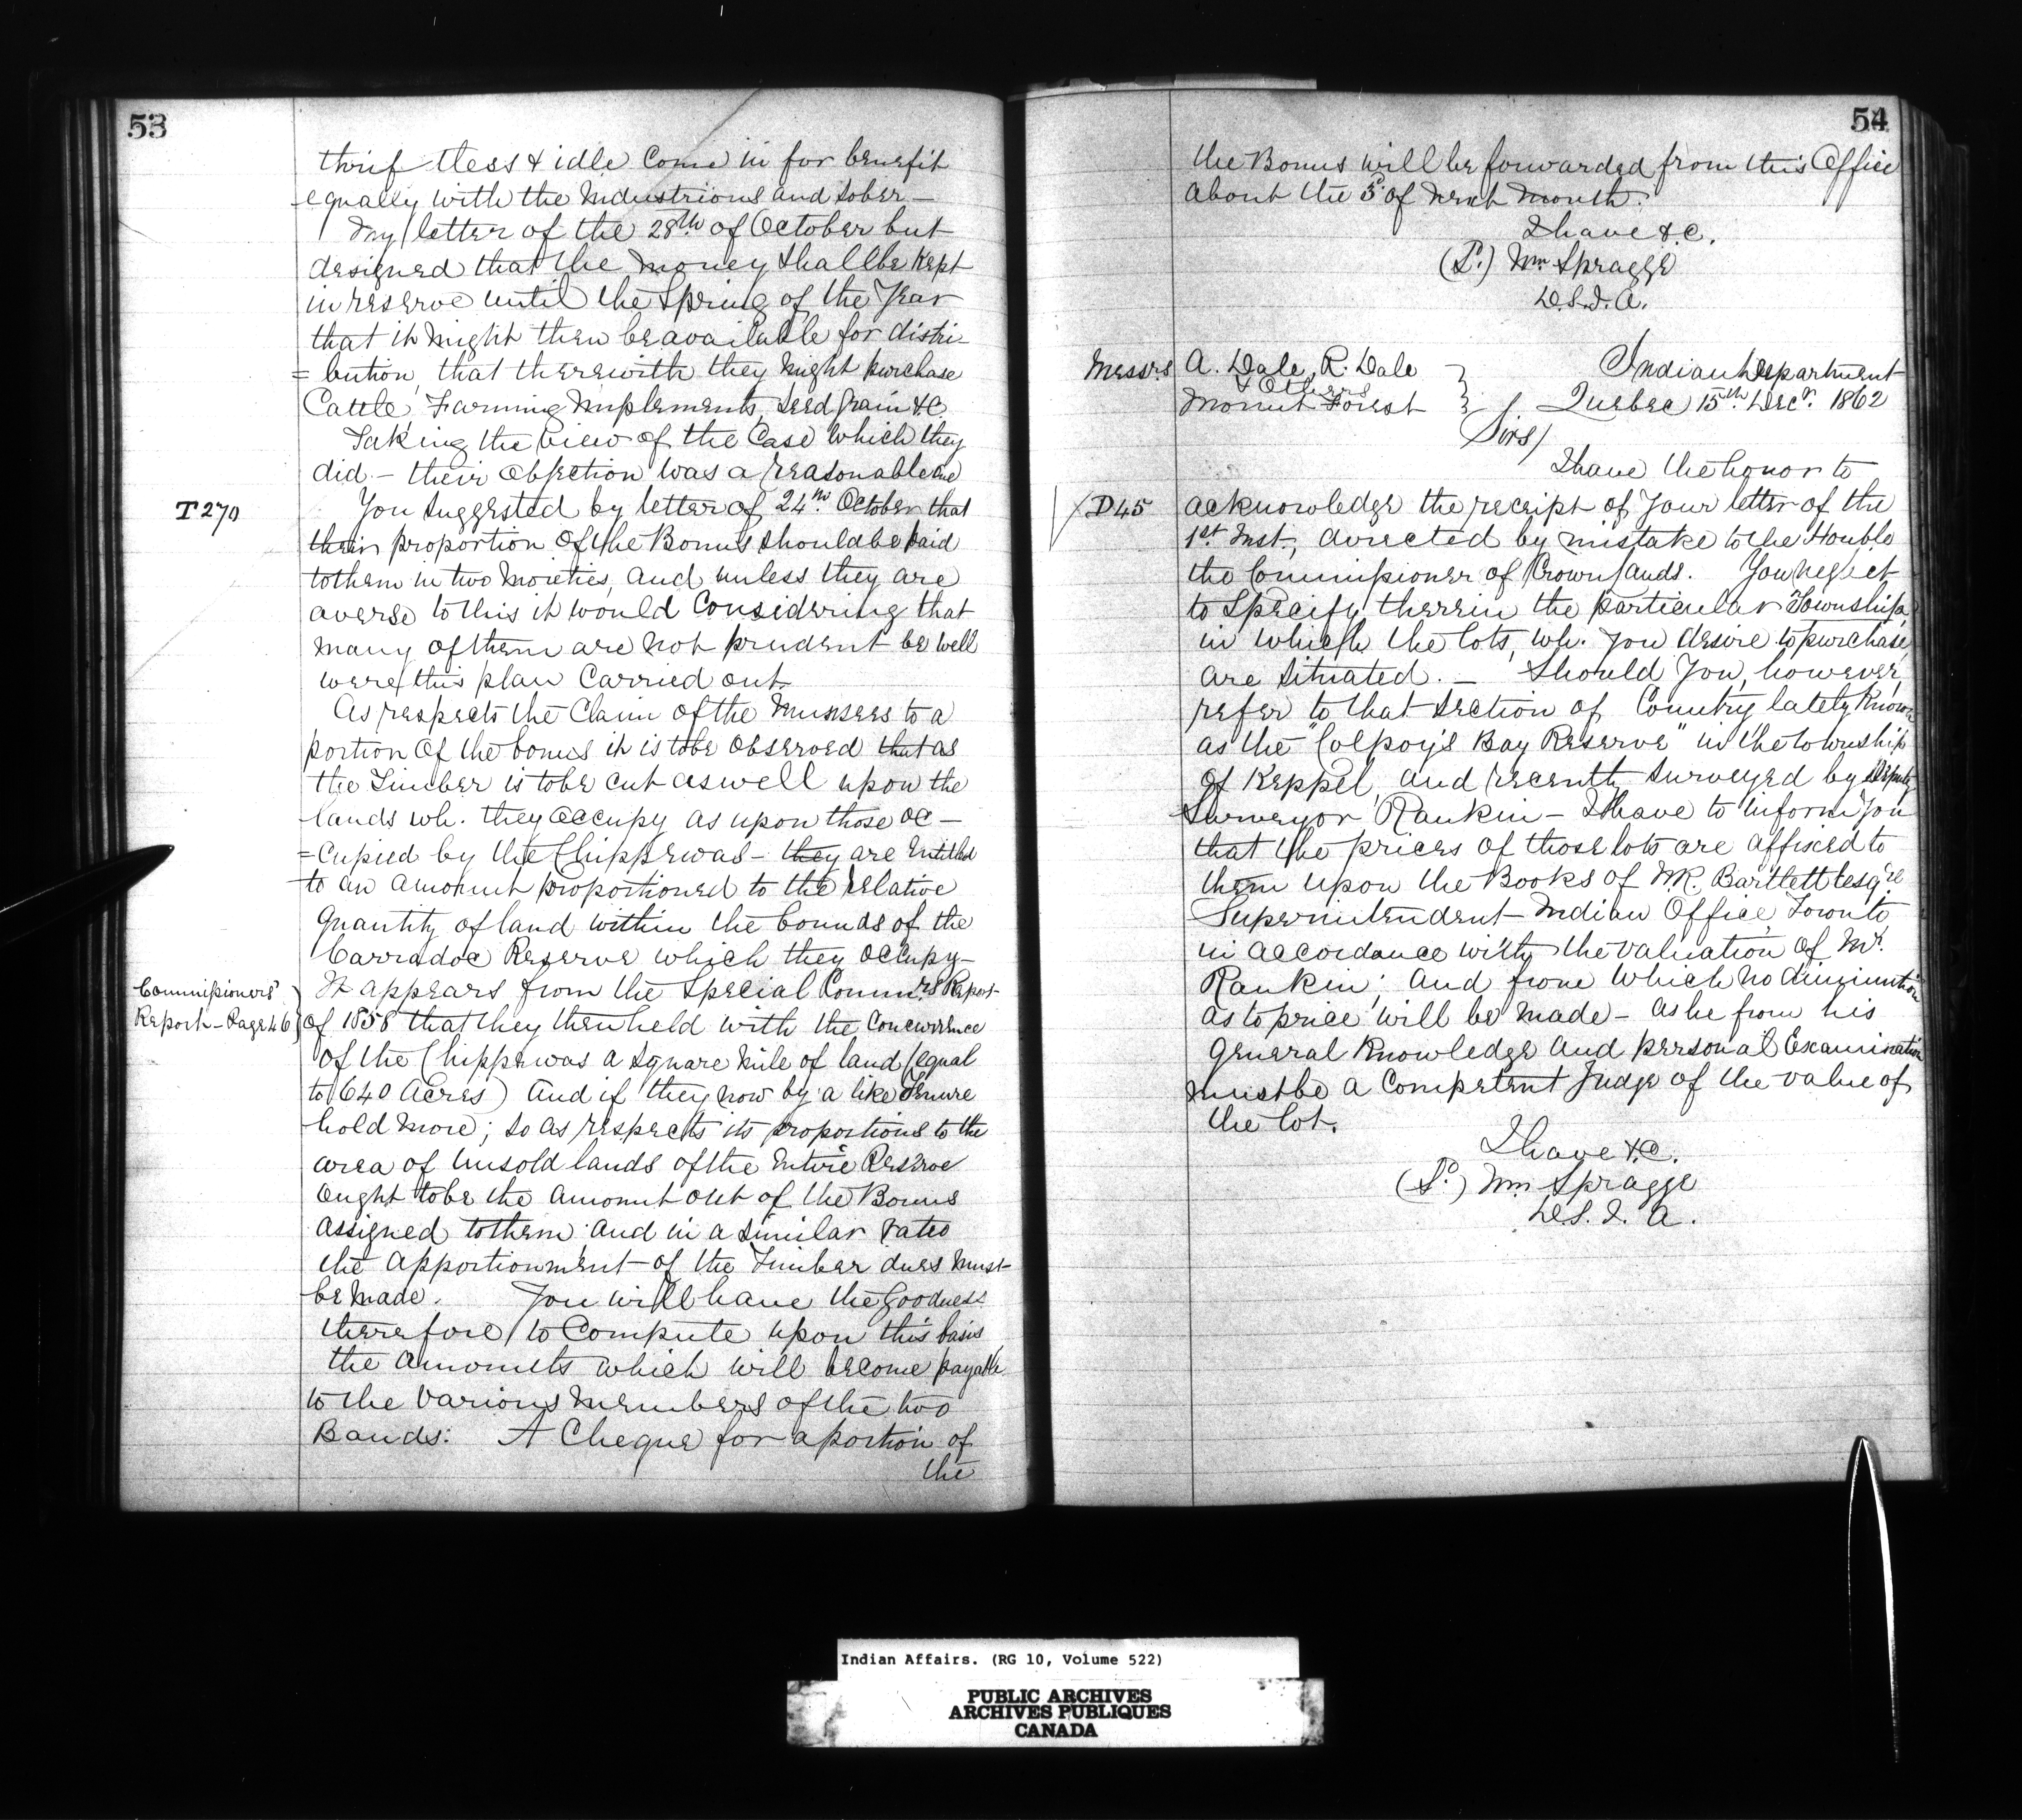 53
thriftless & idle Come in for benefit
equally with the Industrious and Sober –
My letter of the 28th of October but
designed that the money shall be kept
in reserve until the Spring of the Year
that it might then be available for distri-
= bution, that therewith they might purchase
Cattle, Farming Implements, Seed Grain &C.
Taking the view of the Case which they
did – their objection was a reasonable one
T 270
You suggested by letter of 24th October that
their proportion of the Bonus should be paid
to them in two Moieties, and unless they are
averse to this it would Considering that
many of them are not prudent be well
were this plan Carried out.
As respects the Claim of the Munsees to a
portion of the bonus it is to be observed that as
the Timber is to be cut as well upon the
lands wh. they occupy as upon those oc –
= cupied by the Chippewas – they are Entitled
to an amount proportioned to the relative
Quantity of land within the bounds of the
Carradoc Reserve which they occupy –
Commissioners'
Report – Page 46
It appears from the Special Commrs Report
of 1858 that they then held with the Concurrence
of the Chippewas a Square Mile of land (equal
to 640 Acres) And if they now by a like Tenure
hold More; So as respects its proportions to the
area of Unsold lands of the Entire Reserve
ought to be the amount out of the Bonus
assigned to them; and in a similar ratio
the apportionment of the Timber dues must
be Made. You will have the Goodness
therefore to Compute upon this basis
the amounts which will become payable
to the various Members of the two
Bands: A Cheque for a portion of
the
54
the Bonus will be forwarded from this Office
about the 5th of next Month.
I have &.C.
(Sd.) Wm Spragge
D.S.I.A.
Messrs A. Dale, R. Dale
& Others
Mount Forest
Indian Department
Quebec 15th Decr. 1862
Sirs/
I have the honor to
D45
acknowledge the receipt of Your letter of the
1st Inst, directed by mistake to the Honble
the Commissioner of Crown lands. You neglect
to Specify therein the particular Township,
in which the lots, wh. You desire to purchase,
are situated. – Should You, however,
refer to that Section of Country lately Known
as the "Colpoy's Bay Reserve" in the township
of Keppel, and recently Surveyed by Deputy
Surveyor Rankin – I have to inform You
that the prices of those lots are affixed to
them upon the Books of W.R. Bartlett Esqre
Superintendent Indian Office, Toronto
in accordance with the valuation of Mr.
Rankin; And from which no diminution
as to price will be Made – as he from his
general Knowledge and personal Examination
must be a Competent Judge of the value of
the lot.
I have &.C.
(Sd.) Wm Spragge
D.S.I.A.
Indian Affairs. (RG 10, Volume 522)
PUBLIC ARCHIVES
ARCHIVES PUBLIQUES
CANADA